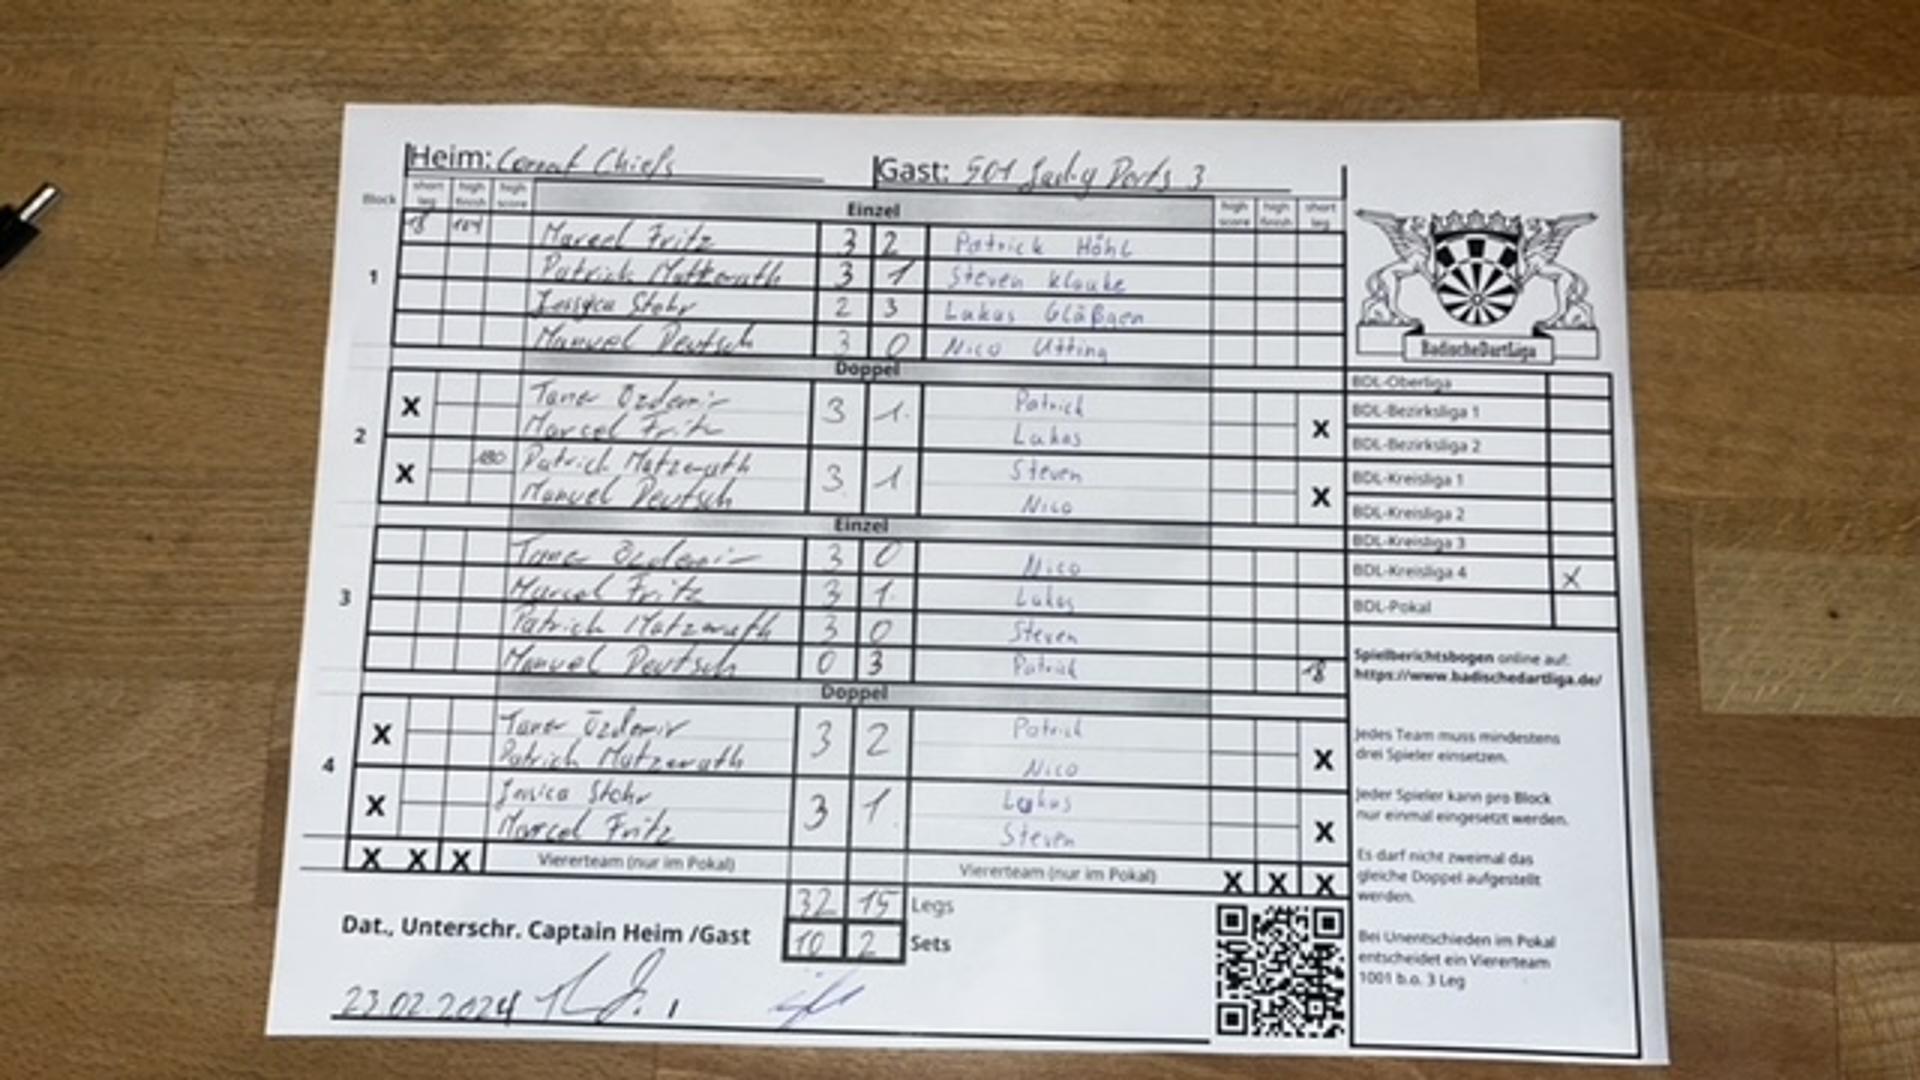 Heim: Comet Chiefs Gast: 501 Darts 3
Block short leg high finish high score Einzel high score high finish short leg
1
18 104 Marcel Fritz 3 2 Patrick Höhl
Patrick Matzerath 3 1 Steven Klauke
Jessica Stohr 2 3 Lukas Gläßgen
Manuel Deutsch 3 0 Nico Utting
Doppel
2
X Taner Özdemir 3 1 Patrick X
Marcel Fritz Lukas
X 180 Patrick Matzerath 3 1 Steven X
Manuel Deutsch Nico
Einzel
3
Taner Özdemir 3 0 Nico
Marcel Fritz 3 1 Lukas
Patrick Matzerath 3 0 Steven
Manuel Deutsch 0 3 Patrick 18
Doppel
4
X Taner Özdemir 3 2 Patrick X
Patrick Matzerath Nico
X Jessica Stohr 3 1 Lukas X
Marcel Fritz Steven
X X X Viererteam (nur im Pokal) Viererteam (nur im Pokal) X X X
32 15 Legs
10 2 Sets
Dat., Unterschr. Captain Heim /Gast
23.02.2024
BadischeDartLiga
BDL-Oberliga
BDL-Bezirksliga 1
BDL-Bezirksliga 2
BDL-Kreisliga 1
BDL-Kreisliga 2
BDL-Kreisliga 3
BDL-Kreisliga 4 X
BDL-Pokal
Spielberichtsbogen online auf:
https://www.badischedartliga.de/
Jedes Team muss mindestens
drei Spieler einsetzen.
Jeder Spieler kann pro Block
nur einmal eingesetzt werden.
Es darf nicht zweimal das
gleiche Doppel aufgestellt
werden.
Bei Unentschieden im Pokal
entscheidet ein Viererteam
1001 b.o. 3 Leg